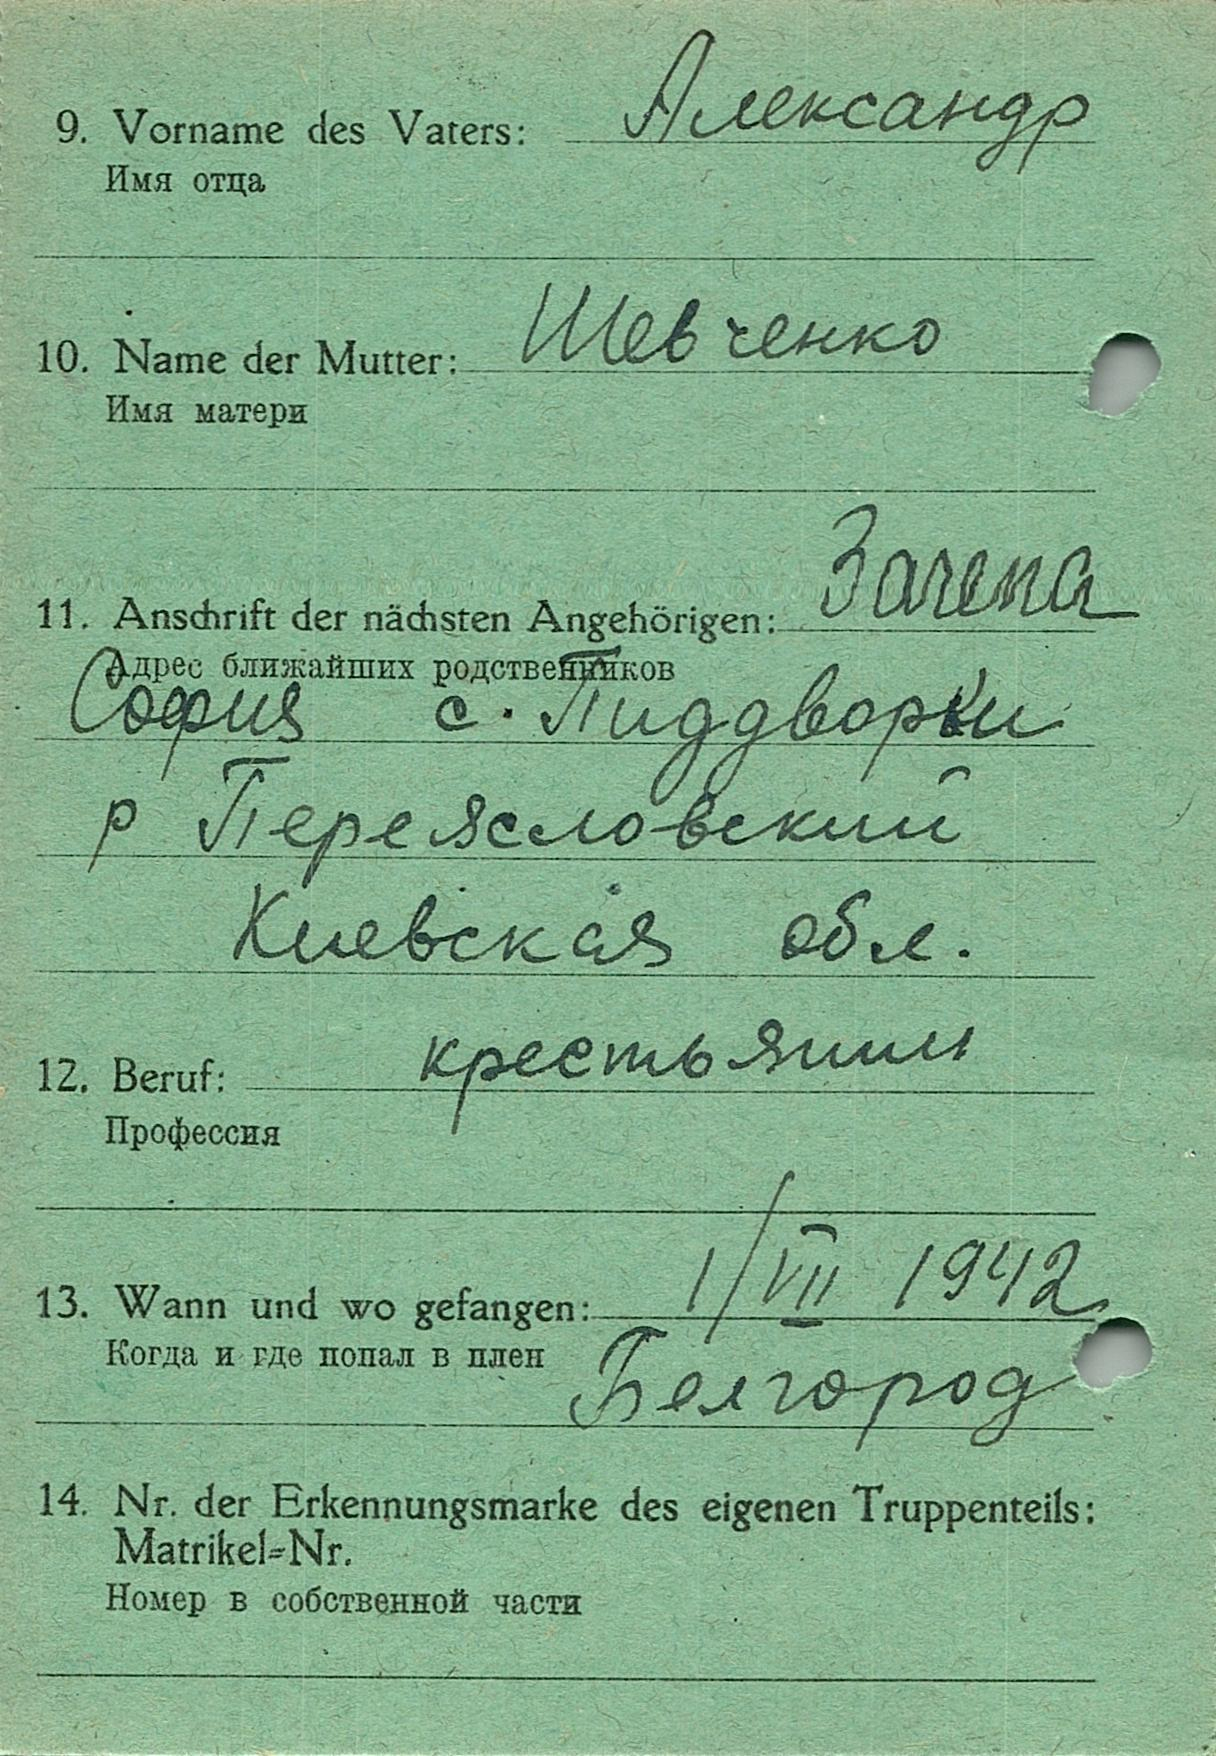 9. Vorname des Vaters: Александр
Имя отца
10. Name der Mutter: Шевченко
Имя матери
11. Anschrift der nächsten Angehörigen: Зачепа
Адрес ближайших родственников
София с. Пиддворки
р Переясловский
Киевская обл.
12. Beruf: крестьянин
Профессия
13. Wann und wo gefangen: 1/VII 1942
Когда и где попал в плен
Белгород
14. Nr. der Erkennungsmarke des eigenen Truppenteils:
Matrikel-Nr.
Номер в собственной части